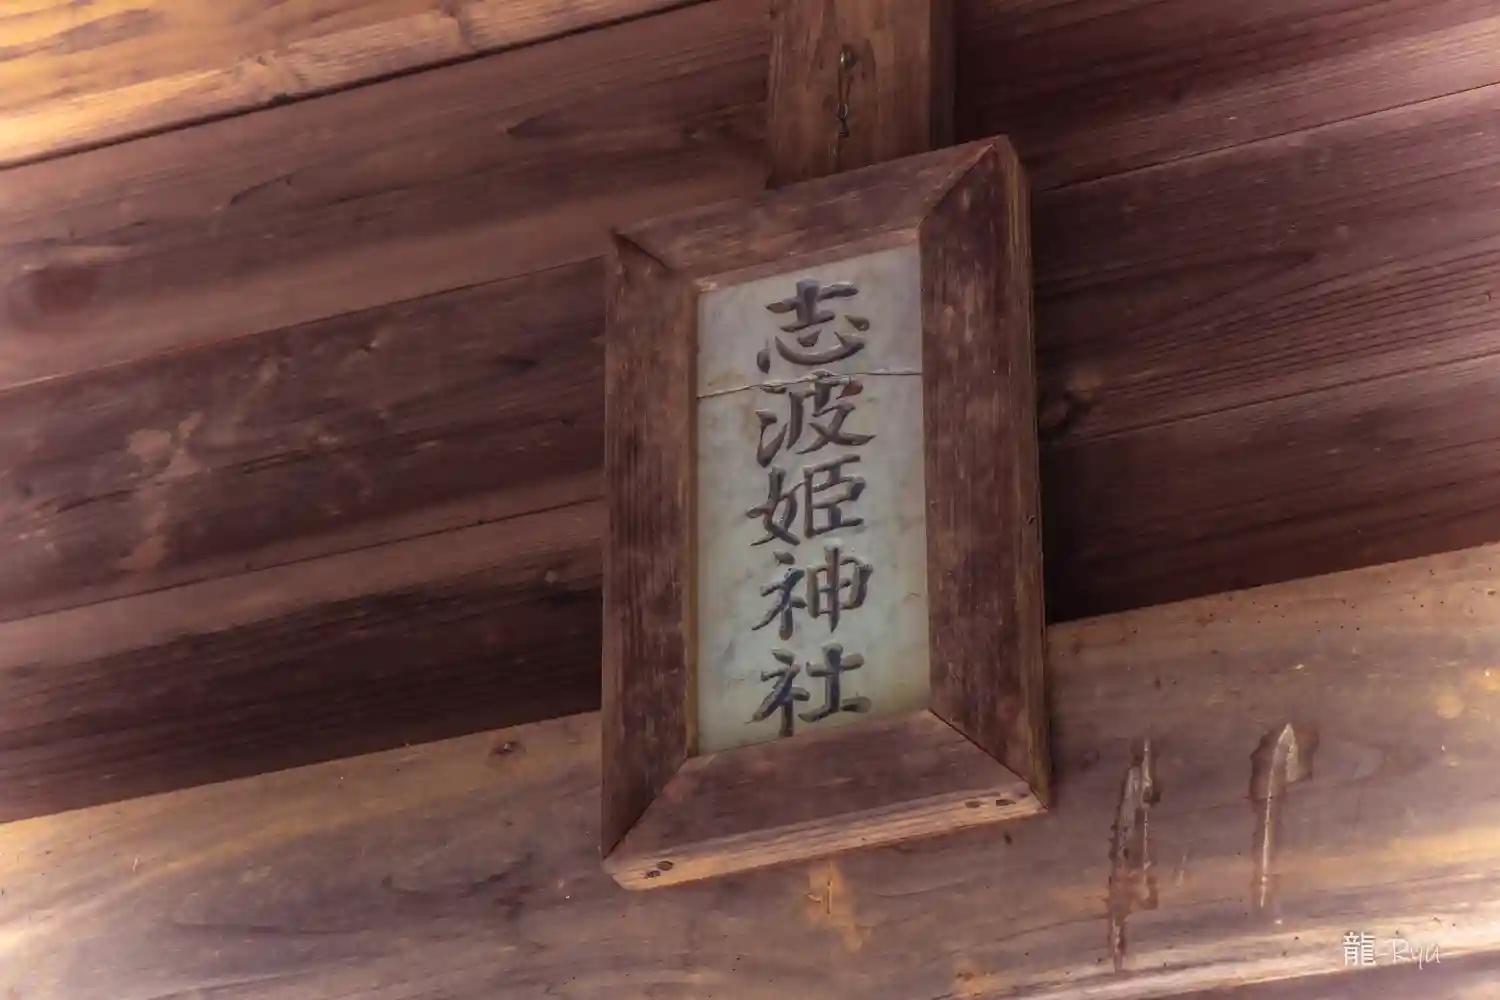 志波姫神社
龍-Ryu-